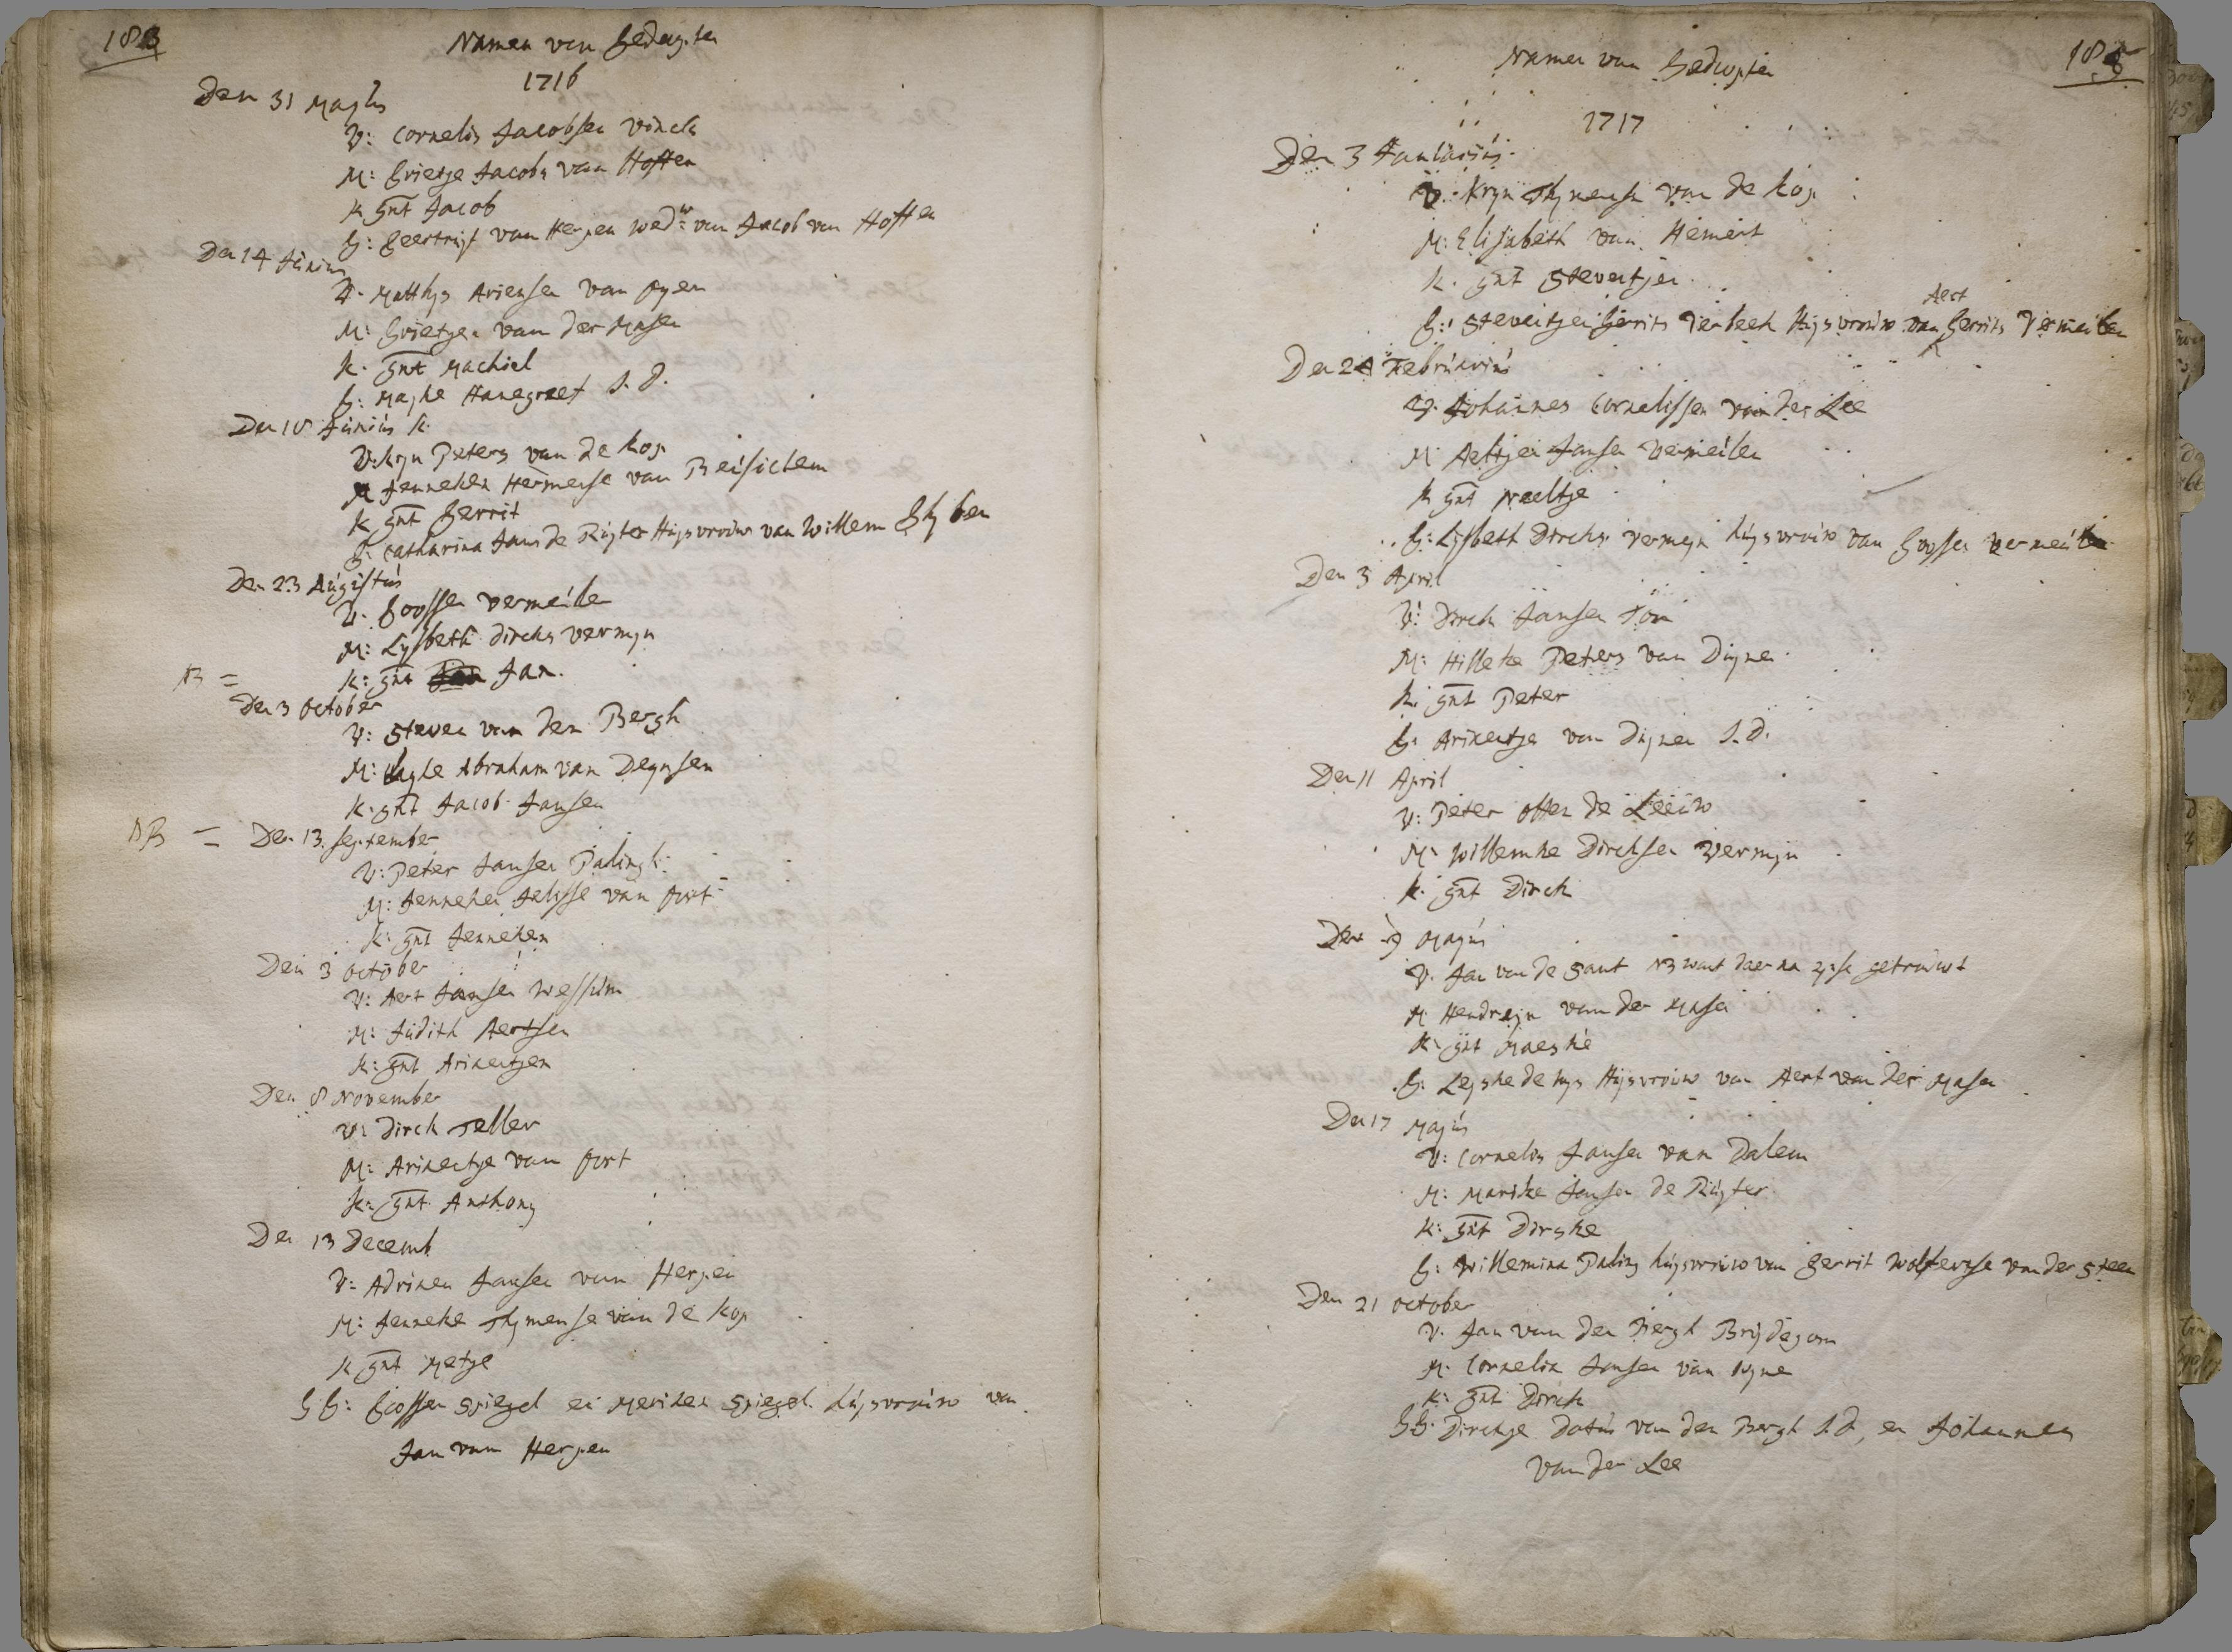 183
Namen van Gedoopten
1716
Den 31 Majus
V: Cornelis Jacobsen Vinck
M: Grietje Jacobs van Hoften
K gnt Jacob
G: Geertruijt van Herpen wedw van Jacob van Hoften
Den 14 Junius
V. Matthys Ariensen van Ojen
M: Grietjen van der Masen
K. gnt Machiel
G: Mayke Hanegraef J. D.
Den 18 Junius K.
V: Kryn Peters van de Kop
M Jenneken Hermense van Beusichem
K gnt Gerrit
G: Catharina Jans de Ruyter Huysvrouw van Willem Ghyben
Den 23 Augustus
V. Goossen Vermeulen
M: Lysbeth Dircks Vermyn
NB = K: gnt Jan.
Den 3 October
V: Steven van den Bergh
M: Abraham van Deynsen
K. gnt Jacob Jansen
NB = Den 13 September
V: Peter Jansen Palingh
M: Jenneken Jelisse van Oort
K: gnt Jenneken
Den 3 October
V: Aert Jansen Wessum
M: Judith Aertsen
K: gnt Ariaentjen
Den 8 November
V: Dirck Teller
M: Ariaentje van Oort
K: gnt Anthony
Den 13 Decemb
V: Adriaen Jansen van Herpen
M: Jenneke Thymense van de Kop
K gnt Metje
GG: Goossen Spiegel en Meriken Spiegel huysvrouw van
Jan van Herpen
Namen van Gedoopten
1717
Den 3 Januarius
V. Kryn Thymense van de Kop
M: Elisabeth van Hemert
K. gnt Stevertjen
Aert
G: Stevertjen Gerrits Verbeek Huysvrouw van Gerrits Vermeulen
Den 24 Februarius
V. Johannes Cornelissen van der Lee
M Aeltjen Jansen Vermeulen
K gnt Neeltje
G: Lysbeth Dircks Vermeyn huysvrouw van Goossen Vermeulen
Den 3 April
V: Dirck Jansen Tom
M: Hilleke Peters van Duynen
K: gnt Peter
G: Ariaentje van Duynen J. D.
Den 11 April
V: Peter Otten de Leeuw
M. Willemke Dircksen Vermyn
K. gnt Dirck
Den 9 Majus
V. Jan van de Sant NB want daerna zyse getrouwt
M Hendrayn van der Masen
K. gnt Maeyke
G. Leyske de hys Huysvrouw van Aert van der Masen
Den 17 Majus
V: Cornelis Jansen van Dalem
M: Marike Jansen de Ruyter
K: gnt Dirske
G: Willemina Paling huysvrouw van Gerrit Woltersse van der Steen
Den 21 October
V. Jan van den Bergh Bruydegom
M. Cornelia Jansen van Uyne
K: gnt Dirck
GG. Dirckje Datus van den Bergh J. D, en Johannes
van der Lee